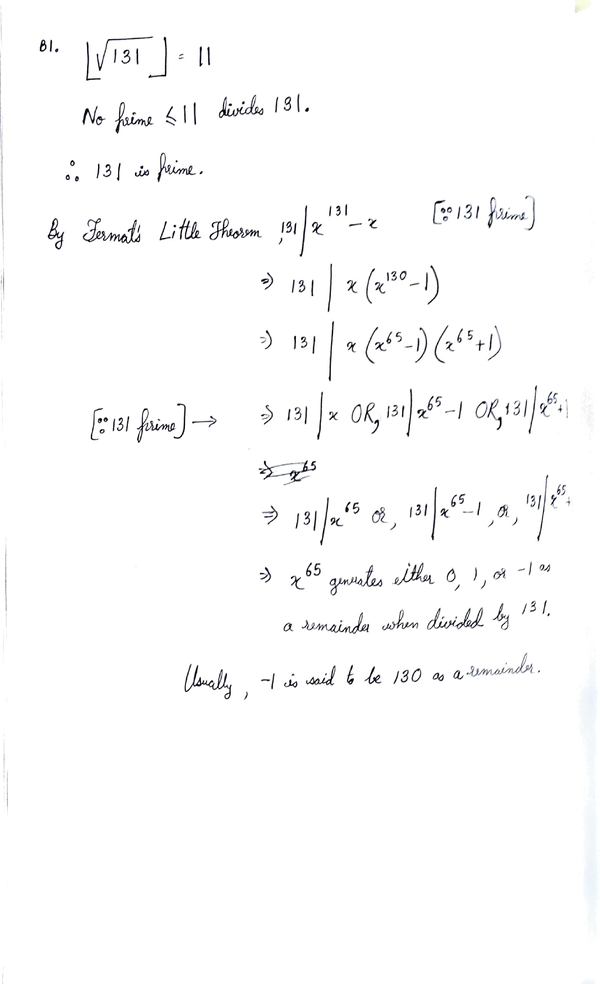 B1. ⌊√131⌋ = 11
No prime ≤ 11 divides 131.
∴ 131 is prime.
By Fermat's Little Theorem, 131 | x^131 - x [∵ 131 prime]
⇒ 131 | x (x^130 - 1)
⇒ 131 | x (x^65 - 1) (x^65 + 1)
[∵ 131 prime] → ⇒ 131 | x OR, 131 | x^65 - 1 OR, 131 | x^65 +1
⇒ x^65
⇒ 131 | x^65 or, 131 | x^65 - 1, or, 131 | x^65 +
⇒ x^65 generates either 0, 1, or -1 as
a remainder when divided by 131.
Usually, -1 is said to be 130 as a remainder.